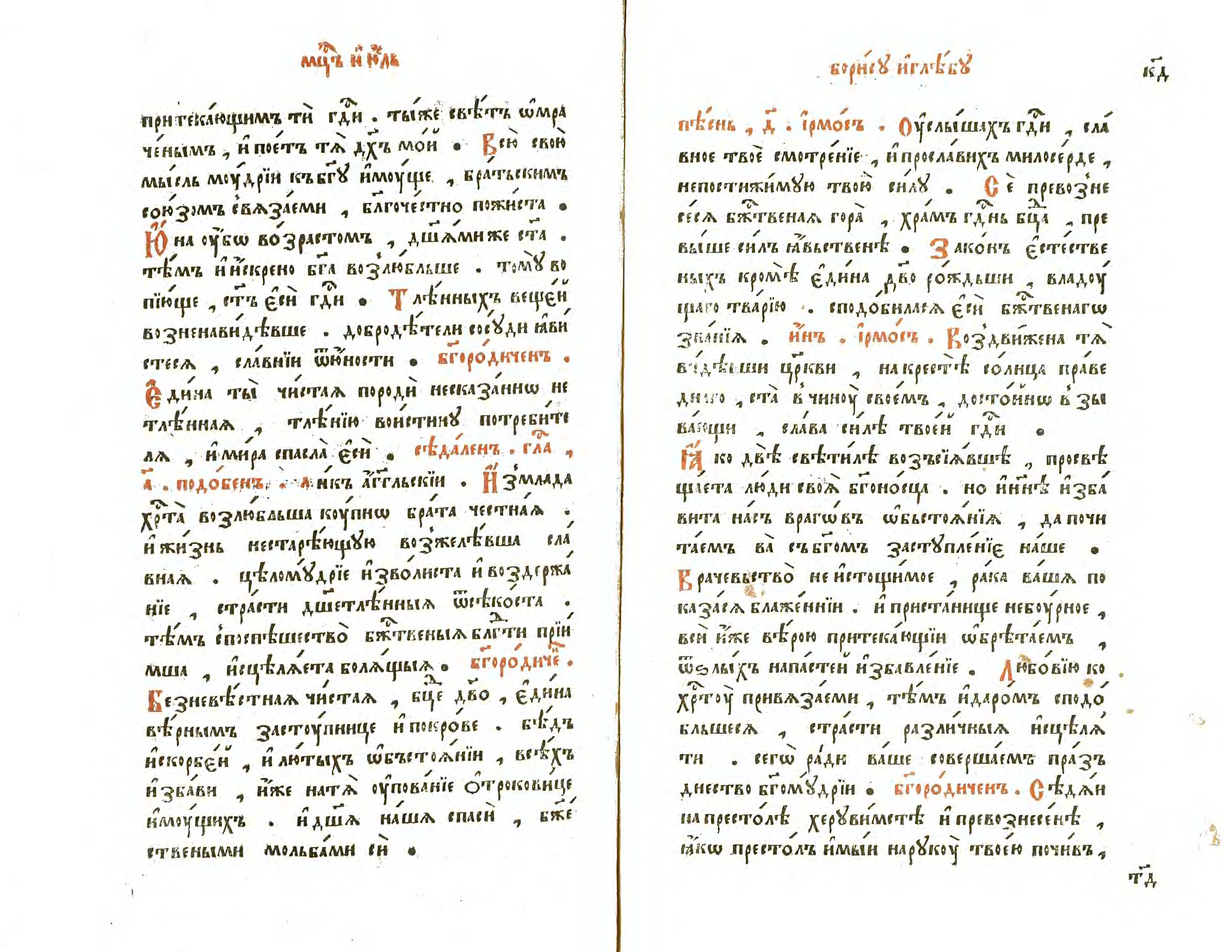 мцⷭ҇ъ и҆ ю҆́лꙿ
притека́ющимъ тѝ гдⷭ҇и . ты́же свѣ́тъ ѡ҆мра
че́нымъ , и҆ пое́тъ тѧ̀ дх҃ъ мо́й . Всю̀ свою̀
мы́слъ моу́дрїи къ бг҃ꙋ и҆мꙋ́ще , бра́тьскимъ
сою́зомъ свѧ́заеми , блг҃оче́стно пожи́ста .
Ю҆́на оу҆́бѡ во́зрастомъ , дш҃а́ми же ста́ .
тѣ́мъ и҆ и҆́скрено бг҃а возлюбльше . томꙋ̀ во
пїю́ще , ст҃ъ є҆сѝ гдⷭ҇и . Тлѣ́нныхъ веще́й
возненави́дѣвше . добродѣ́тели сосꙋ́ди ꙗ҆ви
стесѧ , сла́внїи ѿ ю҆́ности . бг҃оро́диченъ .
Є҆ди́на ты̀ чи́стаѧ породѝ несказа́ннѡ не
тлѣ́ннаѧ , тлѣ́нїю вои́стинꙋ потреби́те
лѧ , и҆ ми́ра спасла̀ є҆сѝ . сѣда́ленъ . гла́ ,
а҃ . подо́бенъ . ли́къ а҆́гг҃льскїи . И҆́змлада
хрⷭ҇та̀ возлюбльша коу́пнѡ бра́та че́стнаѧ .
и҆ жи́знь нестарѣ́ющꙋю возжелѣ́вша сла́
внаѧ . цѣломꙋ́дрїе и҆зво́листа и҆ воздержа́
нїе , стра́сти дш҃етлѣ́нныѧ ѿсѣко́ста .
тѣ́мъ споспѣ́шество бжⷭ҇твеныѧ блгⷣти прїи́
мша , и҆сцѣлѧ́ета болѧ́щыѧ . бг҃оро́диче .
Безневѣ́стнаѧ чи́стаѧ , бц҃е дв҃о , є҆ди́на
вѣ́рнымъ застоу́пнице и҆ покро́ве . бѣ́дъ
и҆ скорбе́й , и҆ лю́тыхъ ѡ҆бъстоѧ́нїи , всѣ́хъ
и҆зба́ви , и҆́же на тѧ̀ оу҆пова́нїе ѻ҆трокови́це
и҆моу́щихъ . и҆ дш҃ѧ̀ на́шѧ спасѝ , бж҃е
ствеными мольба́ми сѝ .
бори́сꙋ и҆ глѣ́бꙋ
к҃д
пѣ́снь , д҃ . і҆рмо́съ . Оу҆слы́шахъ гдⷭ҇и , сла́
вное твоѐ смотре́нїе , и҆ просла́вихъ милосе́рде ,
непостижи́мꙋю твою̀ си́лꙋ . Сѐ превозне
се́сѧ бжⷭ҇твенаѧ гора̀ , хра́мъ гдⷭ҇нь бц҃а , пре
вы́ше си́лъ ꙗ҆́вьственѣ . Зако́нъ є҆сте́стве
ныхъ кромѣ̀ є҆ди́на дв҃о ро́ждьши , владоу́
щаго тва́рїю . сподо́биласѧ є҆сѝ бжⷭ҇твенагѡ
зва́нїѧ . и҆́нъ . і҆рмо́съ . Воздви́жена тѧ̀
ви́дѣвши цр҃кви , на крестѣ̀ со́лнца пра́ве
днаго , ста̀ в чиноу̀ свое́мъ , досто́йнѡ взы
ва́ющи , сла́ва си́лѣ твое́й гдⷭ҇и .
Ꙗ҆́ко двѣ̀ свѣти́лѣ возъсїѧ́вшѣ , просвѣ
ща́ета лю́ди своѧ̀ бг҃оно́сца . но и҆ нн҃ѣ и҆зба́
вита на́съ врагѡ́въ ѡ҆бьстоѧ́нїѧ , да почи
та́емъ ва̀ съ бг҃омъ застꙋпле́нїе на́ше .
Врачевьство̀ неистощи́мое , ра́ка ва́шѧ по
каза́сѧ блаже́ннїи . и҆ приста́нище небоу́рное ,
всѝ и҆́же вѣ́рою притека́ющїи ѡ҆брѣта́емъ ,
ѿ ѕлы́хъ напа́стей и҆збавле́нїе . Любо́вїю ко
хрⷭ҇тоу̀ привѧ́заеми , тѣ́мъ и҆ да́ромъ сподо́
бльшесѧ , стра́сти разли́чныѧ и҆сцѣлѧ́
ти . сегѡ̀ ра́ди ва́ше соверша́емъ пра́зъ
днество бг҃омꙋ́дрїи . бг҃оро́диченъ . Сѣдѧ́и
на престо́лѣ херꙋви́мстѣ и҆ превознесе́нѣ ,
ꙗ҆́кѡ престо́лъ и҆мы́и на рꙋкоу̀ твое́ю почи́въ ,
т҃д